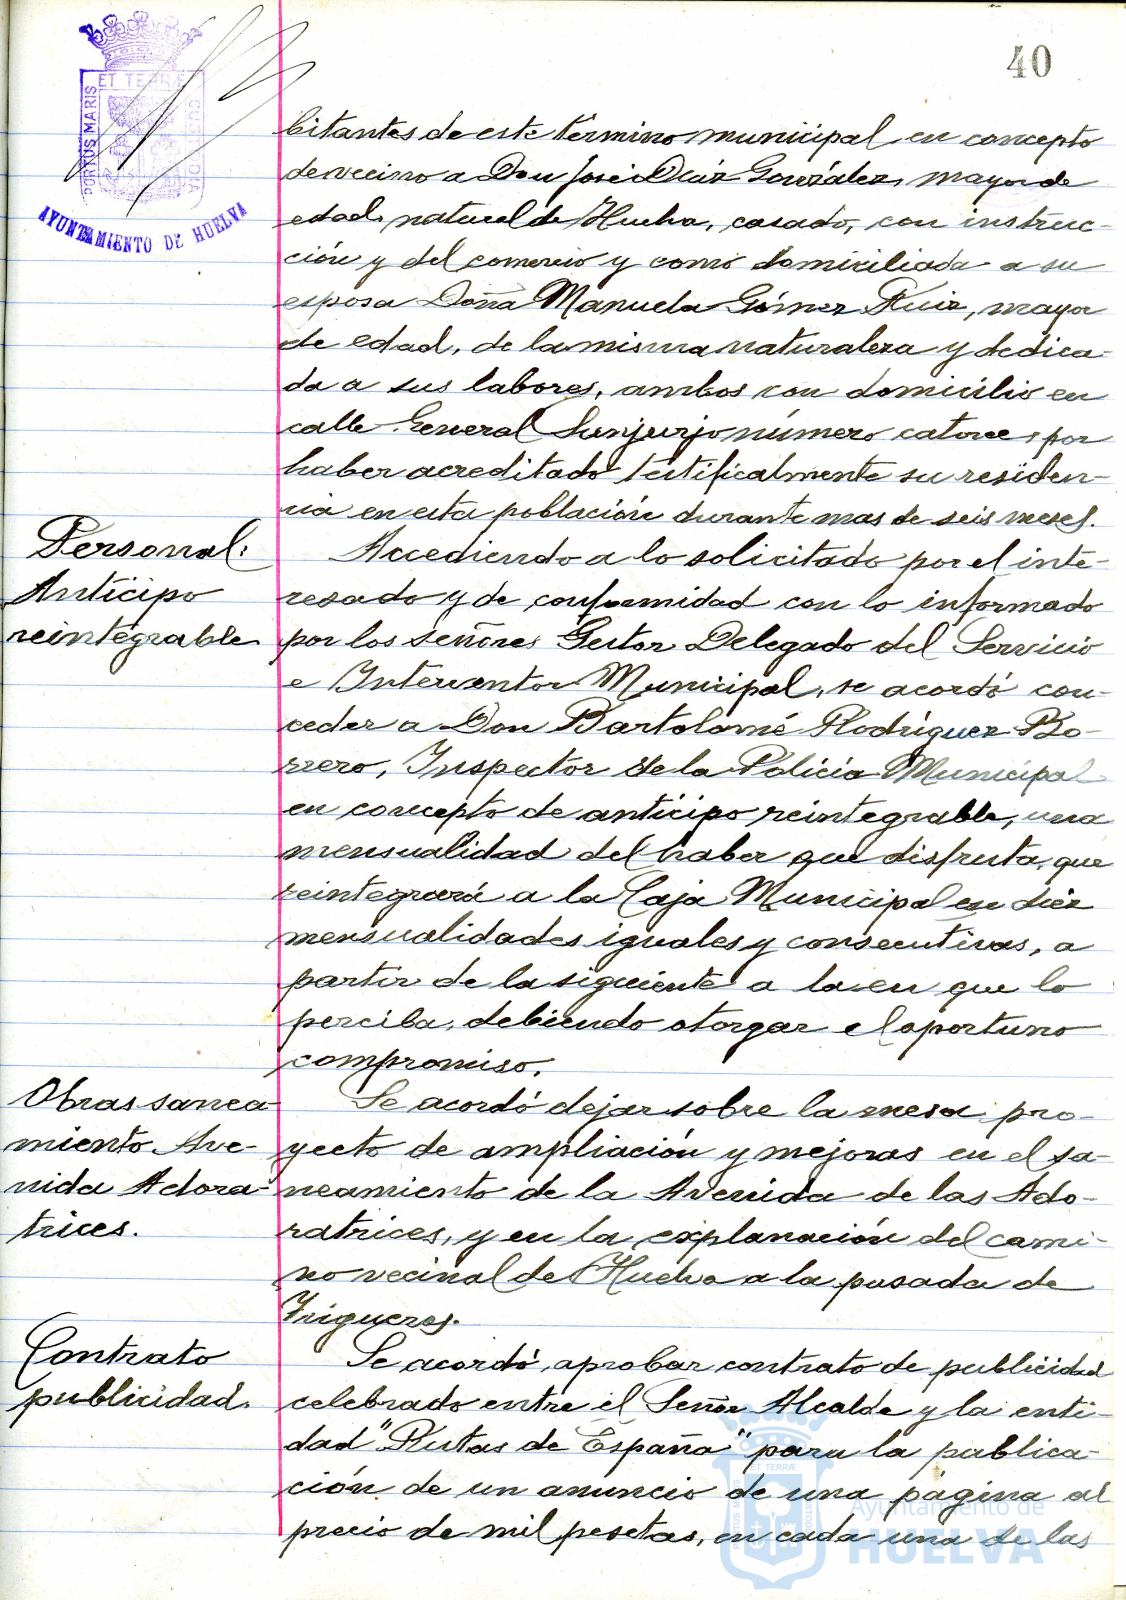 40
ET TERRÆ
PORTUS MARIS
CUSTODIA
AYUNTAMIENTO DE HUELVA
bitantes de este término municipal en concepto
de vecino a Don José Díaz González, mayor de
edad, natural de Huelva, casado, con instruc-
ción y del comercio y como domiciliada a su
esposa Doña Manuela Gómez Ruiz, mayor
de edad, de la misma naturaleza y dedica-
da a sus labores, ambos con domicilio en
calle General Sanjurjo número catorce, por
haber acreditado testificalmente su residen-
cia en esta población durante mas de seis meses.
Personal:
Anticipo
reintegrable
Accediendo a lo solicitado por el inte-
resado y de conformidad con lo informado
por los señores Gestor Delegado del Servicio
e Interventor Municipal, se acordó con-
ceder a Don Bartolomé Rodríguez Bo-
rrero, Inspector de la Policía Municipal
en concepto de anticipo reintegrable, una
mensualidad del haber que disfruta, que
reintegrará a la Caja Municipal en diez
mensualidades iguales y consecutivas, a
partir de la siguiente a la en que lo
perciba, debiendo otorgar el oportuno
compromiso.
Obras sanea
miento Ave-
nida Adora-
trices.
Se acordó dejar sobre la mesa pro-
yecto de ampliación y mejoras en el sa-
neamiento de la Avenida de las Ado-
ratrices, y en la explanación del cami-
no vecinal de Huelva a la pasada de
Trigueros.
Contrato
publicidad.
Se acordó, aprobar contrato de publicidad
celebrado entre el Señor Alcalde y la enti-
dad "Rutas de España" para la publica-
ción de un anuncio de una página al
precio de mil pesetas, en cada una de las
Ayuntamiento de
HUELVA